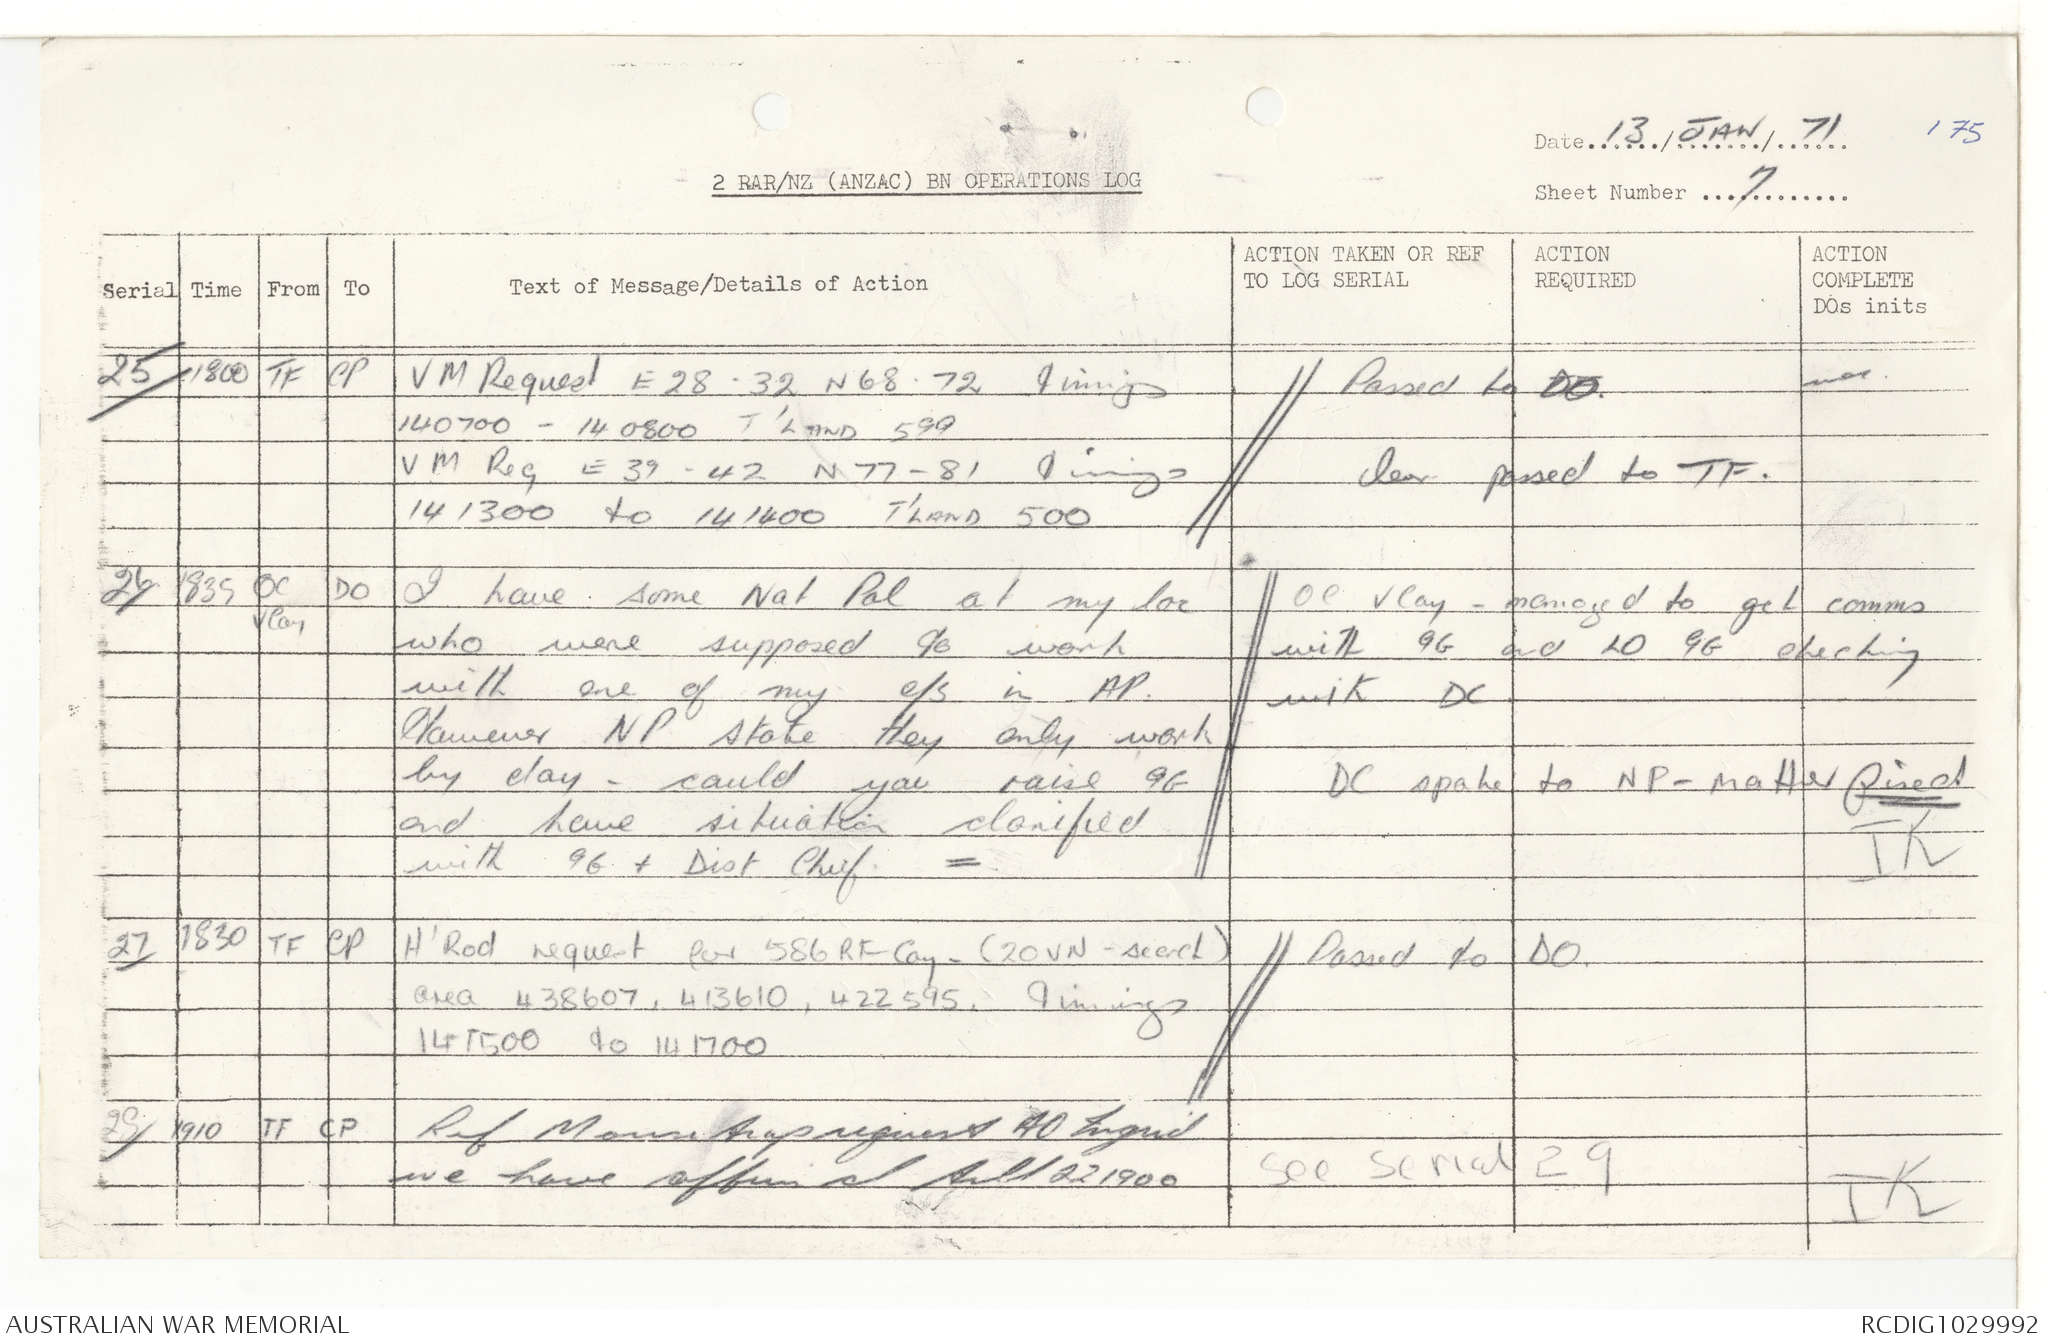 Date 13 / JAN / 71 175
2 RAR/NZ (ANZAC) BN OPERATIONS LOG
Sheet Number 7
Serial Time From To Text of Message/Details of Action ACTION TAKEN OR REF TO LOG SERIAL ACTION REQUIRED ACTION COMPLETE DOs inits
25 1800 TF CP VM Request E 28-32 N 68-72 Timings Passed to DO.
140700 - 140800 T'LAND 599
VM Req E 39-42 N 77-81 Timings Clear passed to TF.
141300 to 141400 T'LAND 500
26 1835 OC DO I have some Nat Pol at my loc OC VCoy - managed to get comms
VCoy who were supposed to work with 9G and LO 9G checking
with one of my c/s in AP. with DC
However NP state they only work
by day - could you raise 9G DC spoke to NP - matter fixed
and have situation clarified IK
with 9G + Dist Chief. =
27 1830 TF CP H'Rod request for 586 RF Coy - (20 VN - search) Passed to DO.
area 438607, 413610, 422595. Timings
141500 to 141700
28 1910 TF CP Ref Mousetrap request AO Ingrid
we have till 221900 see serial 29 IK
AUSTRALIAN WAR MEMORIAL RCDIG1029992